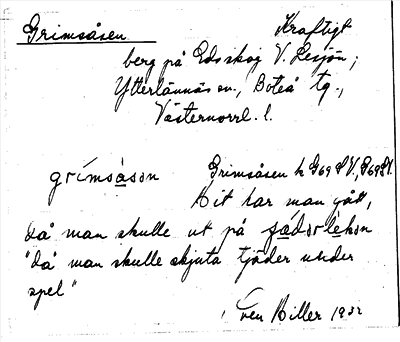 Grimsåsen Kraftigt
berg på Edsskog V. Lesjön;
Ytterlännäs sn., Boteå tg.,
Västernorrl. l.
grímsåsən Grimsåsen h G69 8 V., G69 8 V.
Hit har man gått,
då man skulle ut på fǽdərlèkən
"då man skulle skjuta tjäder under
spel"
Hiller 1932